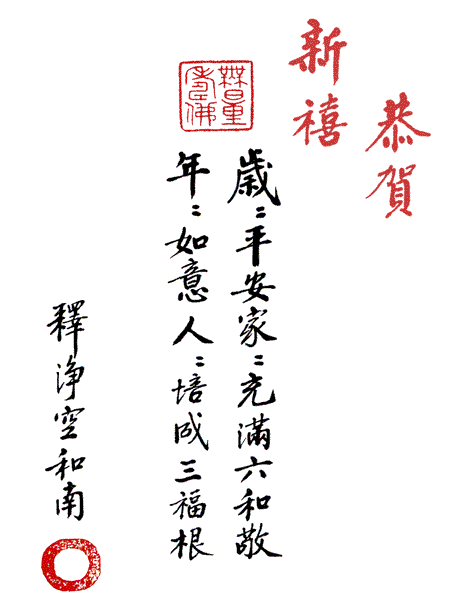 恭賀
新禧
歲〻平安家〻充滿六和敬
無量壽佛
年〻如意人〻培成三福根
釋淨空和南